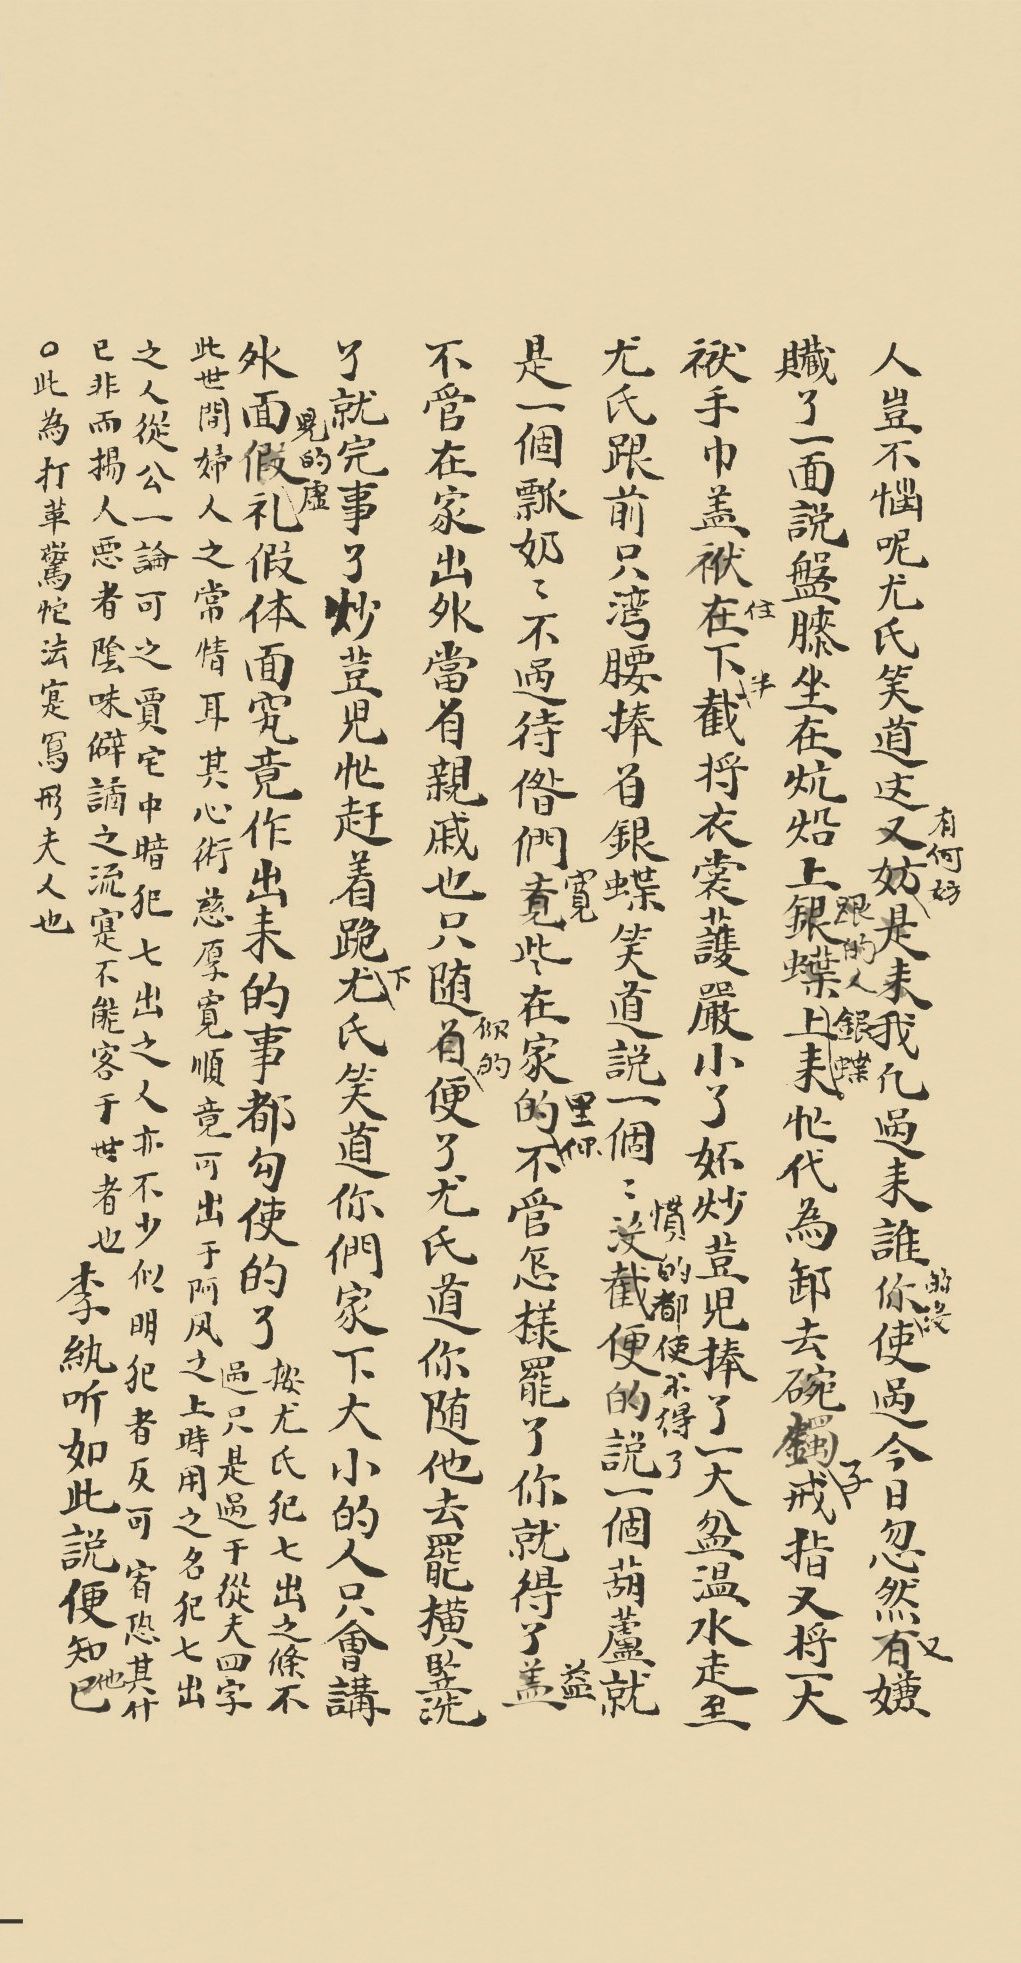 人豈不惱呢尤氏笑道這又妨是來我凢過來誰你使過今日忽然有嫌
有何妨
的沒
又
賍了一面説盤膝坐在炕沿上銀蝶上來忙代為卸去碗鐲戒指又将一大
跟的人銀蝶
子
袱手巾盖袱在下截将衣裳護嚴小了妚炒荳児捧了一大盆温水走至
住
半
尤氏跟前只湾腰捧着銀蝶笑道説一個〻没截便的説一個葫蘆就
慣的都使不得了
是一個瓢奶〻不過待偺們寛些在家的不管怎樣罷了你就得了盖
寛
里你
益
不管在家出外當着親戚也只随着便了尤氏道你随他去罷横竪洗
你的
了就完事了炒荳児忙赶着跪尤氏笑道你們家下大小的人只會講
下
外面假礼假体面究竟作出来的事都勾使的了
見的虚
按尤氏犯七出之條不
過只是過于從夫四字
此世間婦人之常情耳其心術慈厚寛順竟可出于阿凤之上時用之名犯七出
之人從公一論可之賈宅中暗犯七出之人亦不少似明犯者反可宥恐其什
已非而揚人悪者陰昧僻譎之流寔不能容于世者也
〇此為打草驚蛇法寔寫形夫人也
李紈听如此説便知已
他